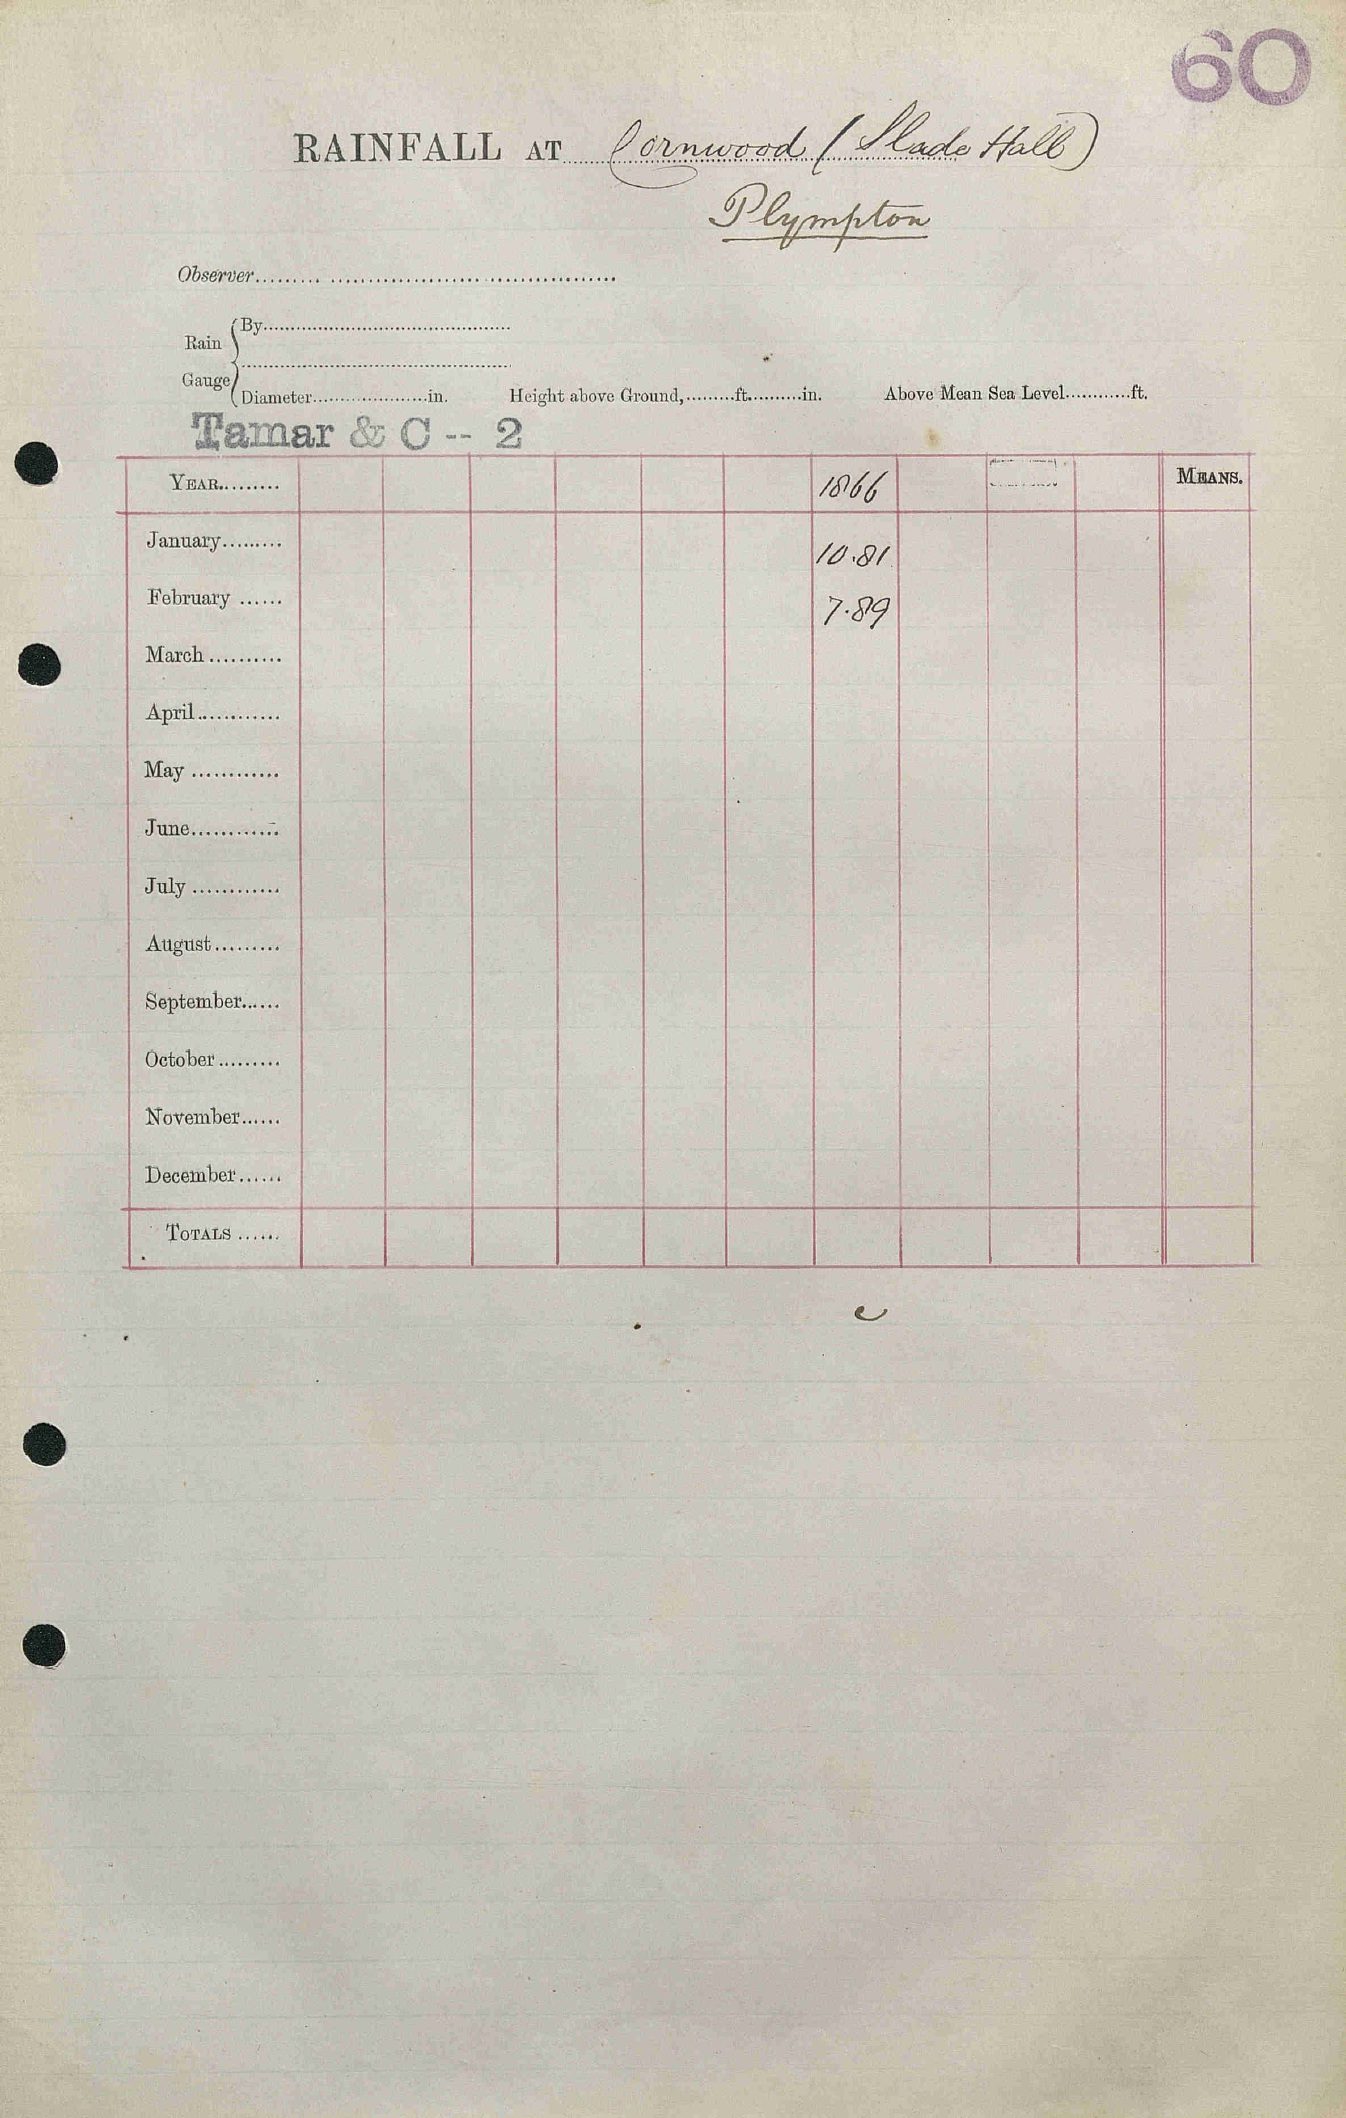 60
RAINFALL AT Cornwood (Slade Hall)
Plympton
Observer
Rain Gauge
By
Diameter in. Height above Ground, ft. in. Above Mean Sea Level ft.
Tamar & C -- 2
YEAR 1866 MEANS.
January 10.81
February 7.89
March
April
May
June
July
August
September
October
November
December
TOTALS
c